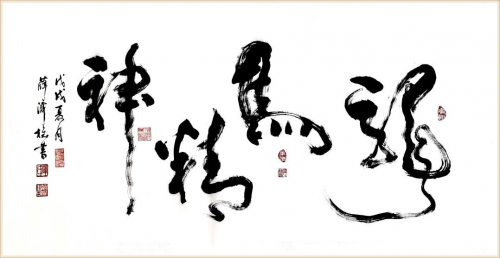 龍馬精神
戊戌夏月
薛澤松書